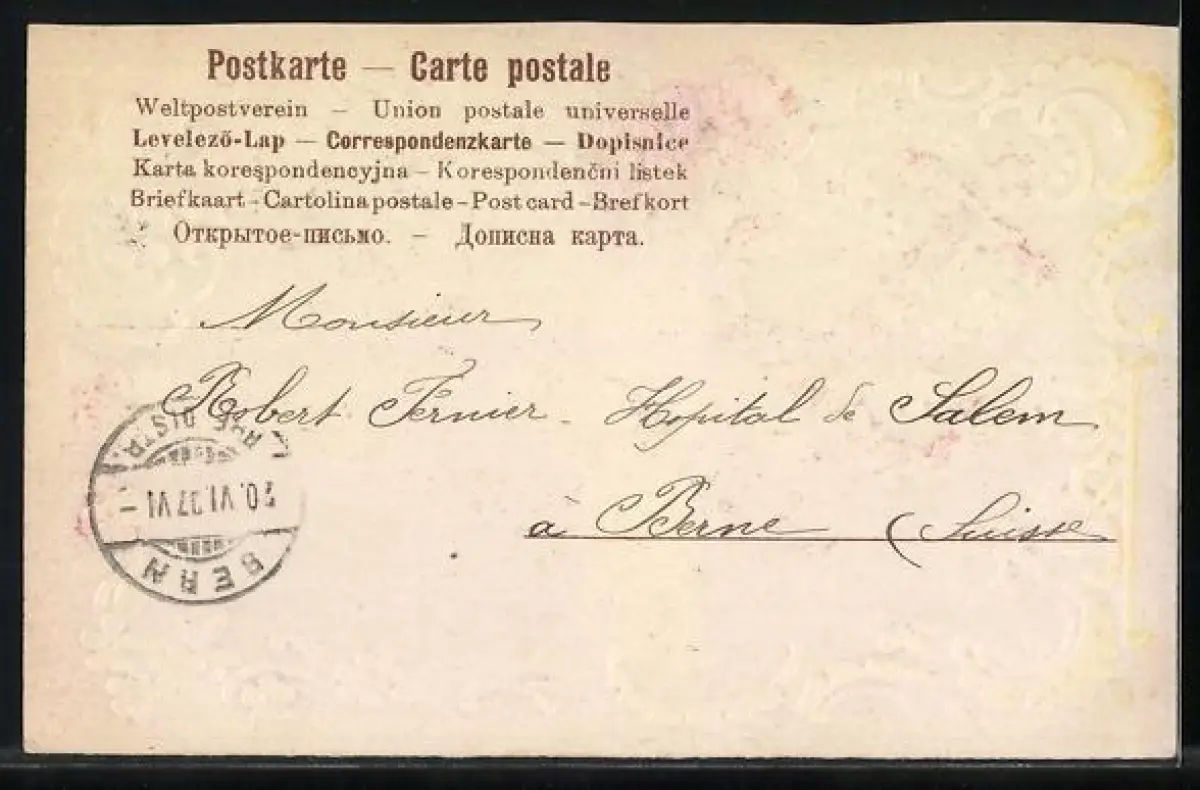 Postkarte — Carte postale
Weltpostverein — Union postale universelle
Levelező-Lap — Correspondenzkarte — Dopisnice
Karta korespondencyjna – Korespondenčni listek
Briefkaart – Cartolina postale – Post card – Brefkort
Открытое-письмо. — Дописна карта.
Monsieur
Robert Fernier. Hopital de Salem
à Berne (Suisse
DISTR.
VI.07.VI –
BERN